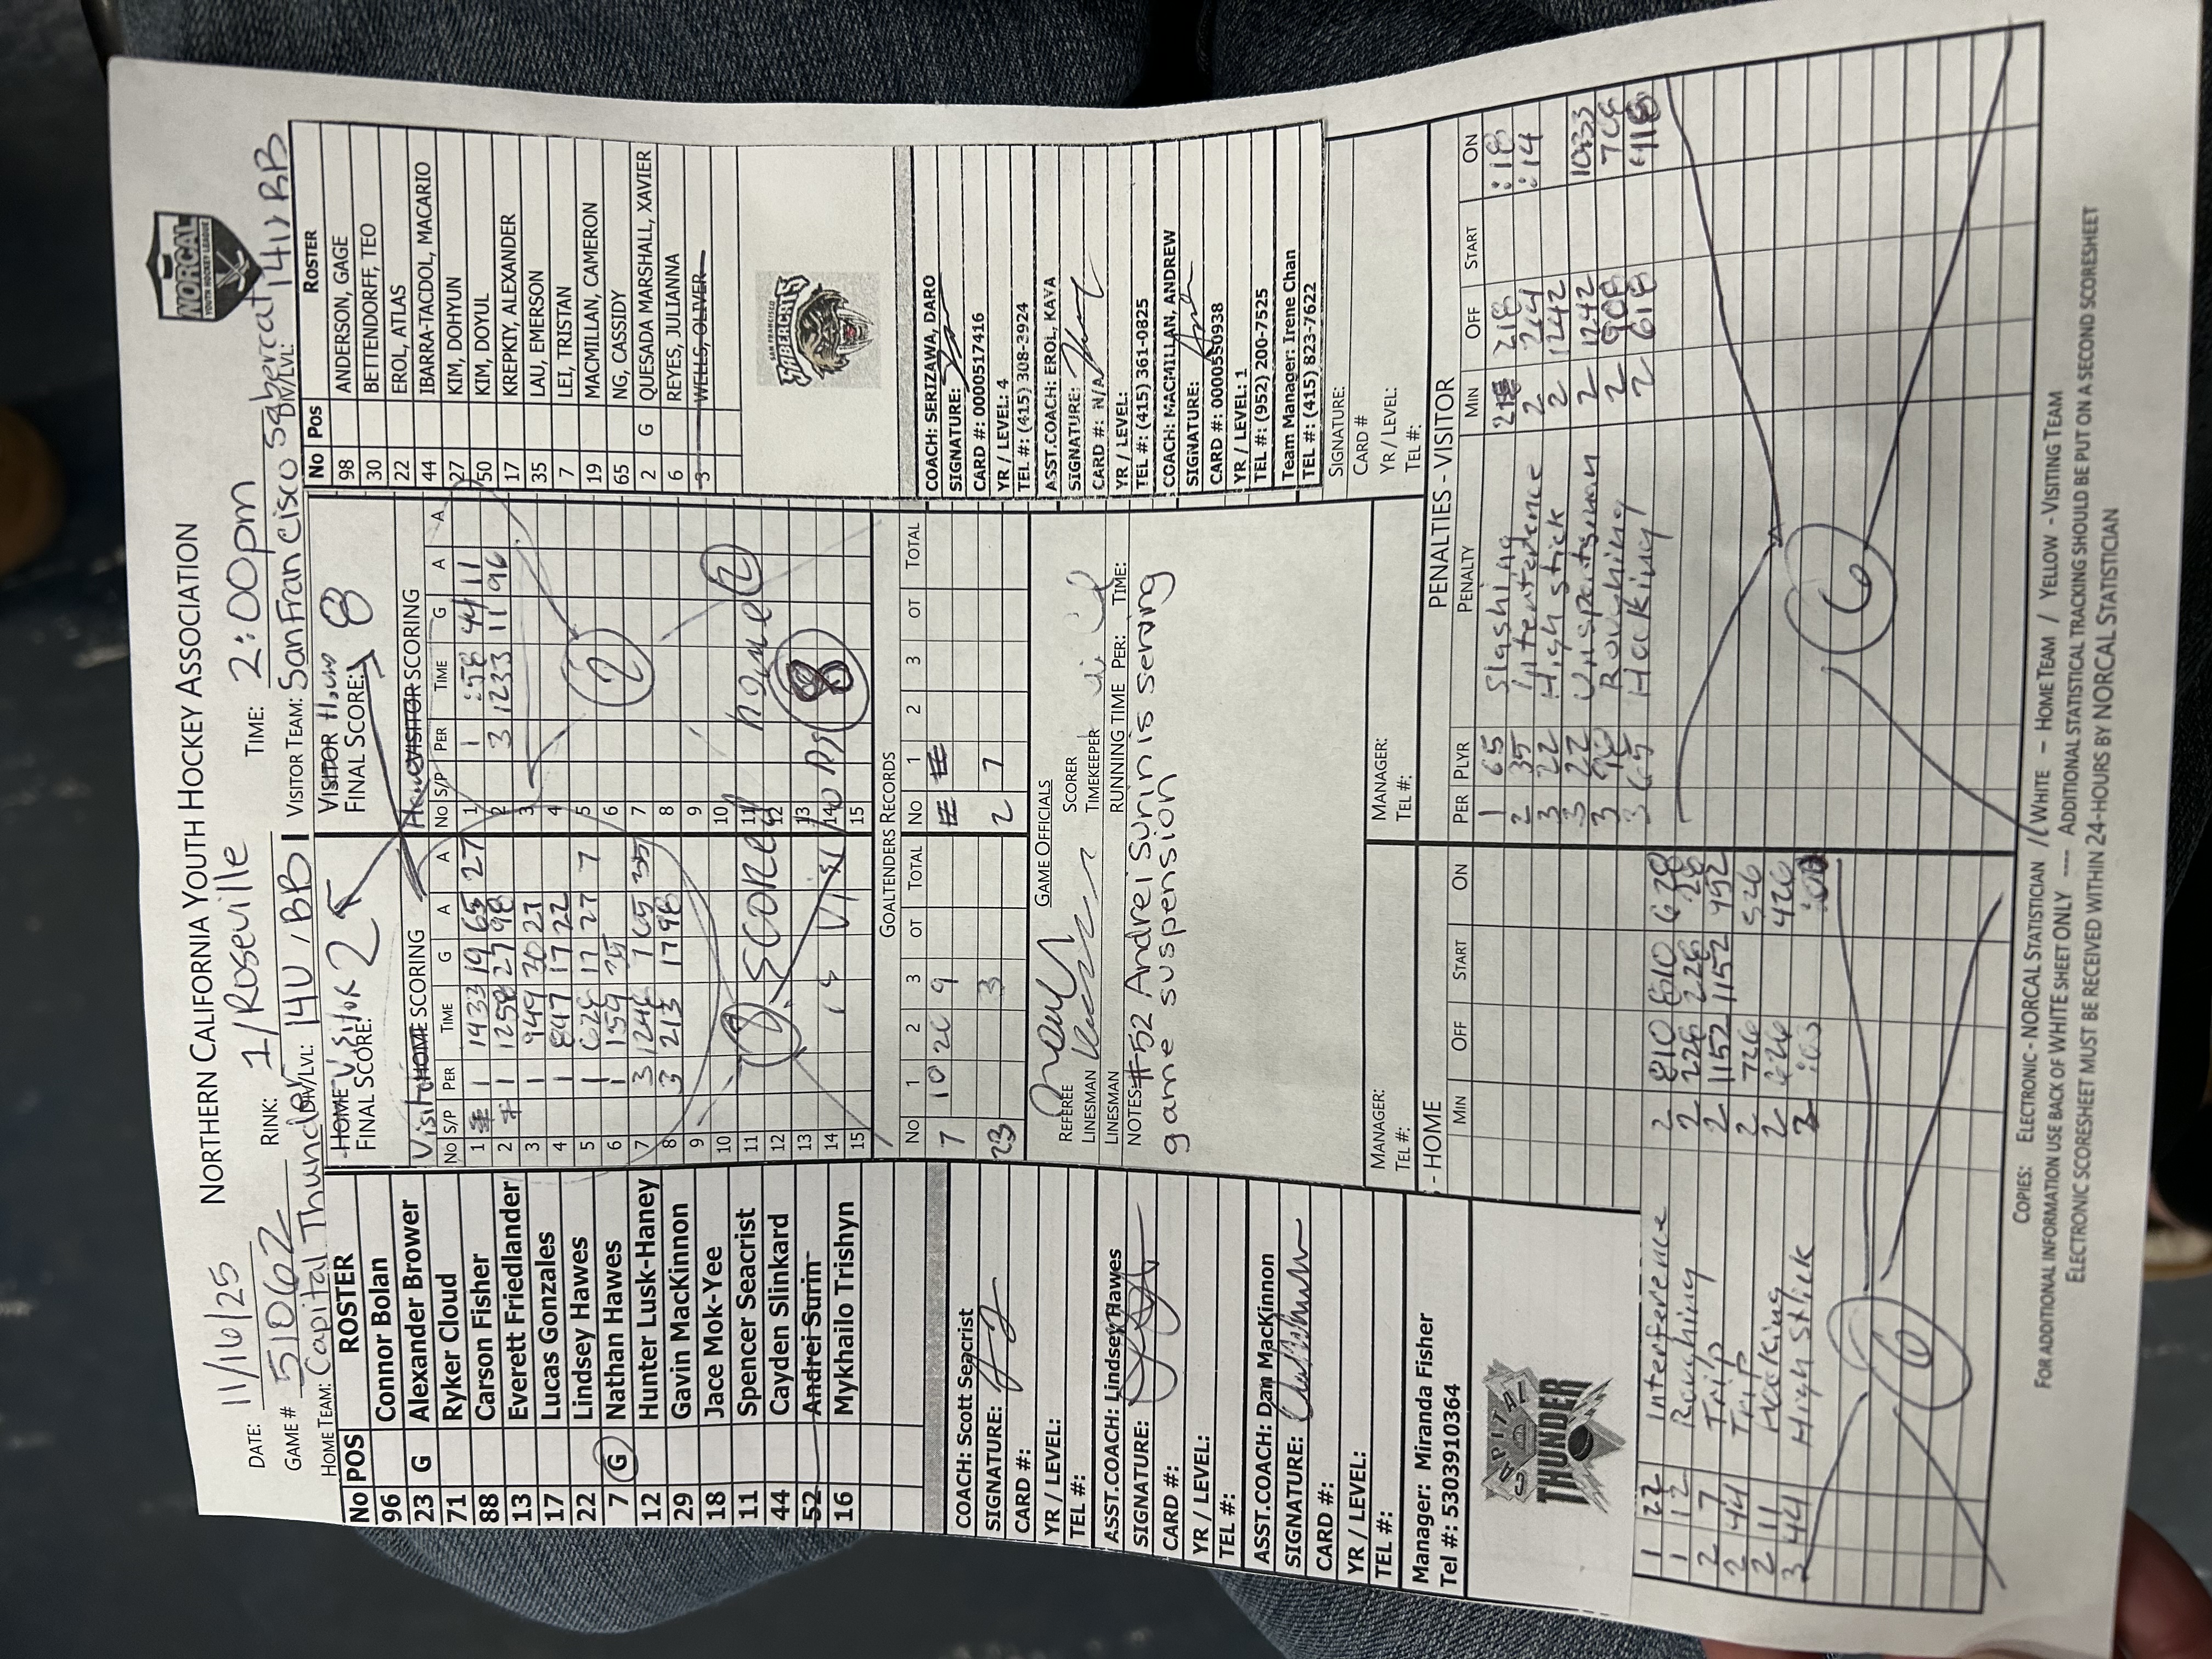 NORTHERN CALIFORNIA YOUTH HOCKEY ASSOCIATION
NORCAL
YOUTH HOCKEY LEAGUE
DATE: 11/16/25
GAME # 51062
RINK: 1/Roseville
TIME: 2:00pm
HOME TEAM: Capital Thunder
DIV/LVL: 14U / BB1
VISITOR TEAM: San Francisco Sabercat
DIV/LVL: 14U BB
HOME Visitor
FINAL SCORE: 2
VISITOR Home
FINAL SCORE: 8
No POS ROSTER
96 Connor Bolan
23 G Alexander Brower
71 Ryker Cloud
88 Carson Fisher
13 Everett Friedlander
17 Lucas Gonzales
22 Lindsey Hawes
7 G Nathan Hawes
12 Hunter Lusk-Haney
29 Gavin MacKinnon
18 Jace Mok-Yee
11 Spencer Seacrist
44 Cayden Slinkard
52 Andrei Surin
16 Mykhailo Trishyn
COACH: Scott Seacrist
SIGNATURE:
CARD #:
YR / LEVEL:
TEL #:
ASST.COACH: Lindsey Hawes
SIGNATURE:
CARD #:
YR / LEVEL:
TEL #:
ASST.COACH: Dan MacKinnon
SIGNATURE:
CARD #:
YR / LEVEL:
TEL #:
Manager: Miranda Fisher
Tel #: 5303910364
CAPITAL
THUNDER
Visit HOME SCORING
No S/P PER TIME G A A
1 1 1433 19 65 27
2 1 1258 27 98
3 1 949 30 27
4 1 847 17 22
5 1 626 17 27 7
6 1 154 35
7 3 1246 7 65 35
8 3 213 17 98
9
10
11
12
13
14
15
8
Home VISITOR SCORING
No S/P PER TIME G A A
1 1 :58 44 11
2 3 1233 11 96
3
4
5
6
7
8
9
10
11
12
13
14
15
2
8
GOALTENDERS RECORDS
No 1 2 3 OT TOTAL
7 10 20 9
23 3
No 1 2 3 OT TOTAL
2 7
GAME OFFICIALS
REFEREE
LINESMAN
LINESMAN
SCORER
TIMEKEEPER
RUNNING TIME PER: TIME:
NOTES: #52 Andrei Surin is serving
game suspension
MANAGER:
TEL #:
MANAGER:
TEL #:
No Pos ROSTER
98 ANDERSON, GAGE
30 BETTENDORFF, TEO
22 EROL, ATLAS
44 IBARRA-TACDOL, MACARIO
27 KIM, DOHYUN
50 KIM, DOYUL
17 KREPKIY, ALEXANDER
35 LAU, EMERSON
7 LEI, TRISTAN
19 MACMILLAN, CAMERON
65 NG, CASSIDY
2 G QUESADA MARSHALL, XAVIER
6 REYES, JULIANNA
3 WELLS, OLIVER
SAN FRANCISCO
SABERCATS
COACH: SERIZAWA, DARO
SIGNATURE:
CARD #: 0000517416
YR / LEVEL: 4
TEL #: (415) 308-3924
ASST.COACH: EROL, KAYA
SIGNATURE:
CARD #: N/A
YR / LEVEL:
TEL #: (415) 361-0825
COACH: MACMILLAN, ANDREW
SIGNATURE:
CARD #: 0000550938
YR / LEVEL: 1
TEL #: (952) 200-7525
Team Manager: Irene Chan
TEL #: (415) 823-7622
SIGNATURE:
CARD #
YR / LEVEL:
TEL #:
- HOME
MIN OFF START ON
1 22 Interference 2 810 810 628
1 12 Roughing 2 226 226 :26
2 7 Trip 2 1152 1152 952
2 44 Trip 2 726 526
2 11 Hooking 2 626 426
3 44 High Stick
6
PENALTIES - VISITOR
PER PLYR PENALTY MIN OFF START ON
1 65 Slashing 2 218 :18
2 35 Interference 2 214 :14
3 22 High stick 2 1242
3 22 Unsportsman 2 1242 1033
3 98 Roughing 2 908 708
3 65 Hooking 2 618 418
6
COPIES: ELECTRONIC - NORCAL STATISTICIAN / WHITE – HOME TEAM / YELLOW - VISITING TEAM
FOR ADDITIONAL INFORMATION USE BACK OF WHITE SHEET ONLY ---- ADDITIONAL STATISTICAL TRACKING SHOULD BE PUT ON A SECOND SCORESHEET
ELECTRONIC SCORESHEET MUST BE RECEIVED WITHIN 24-HOURS BY NORCAL STATISTICIAN